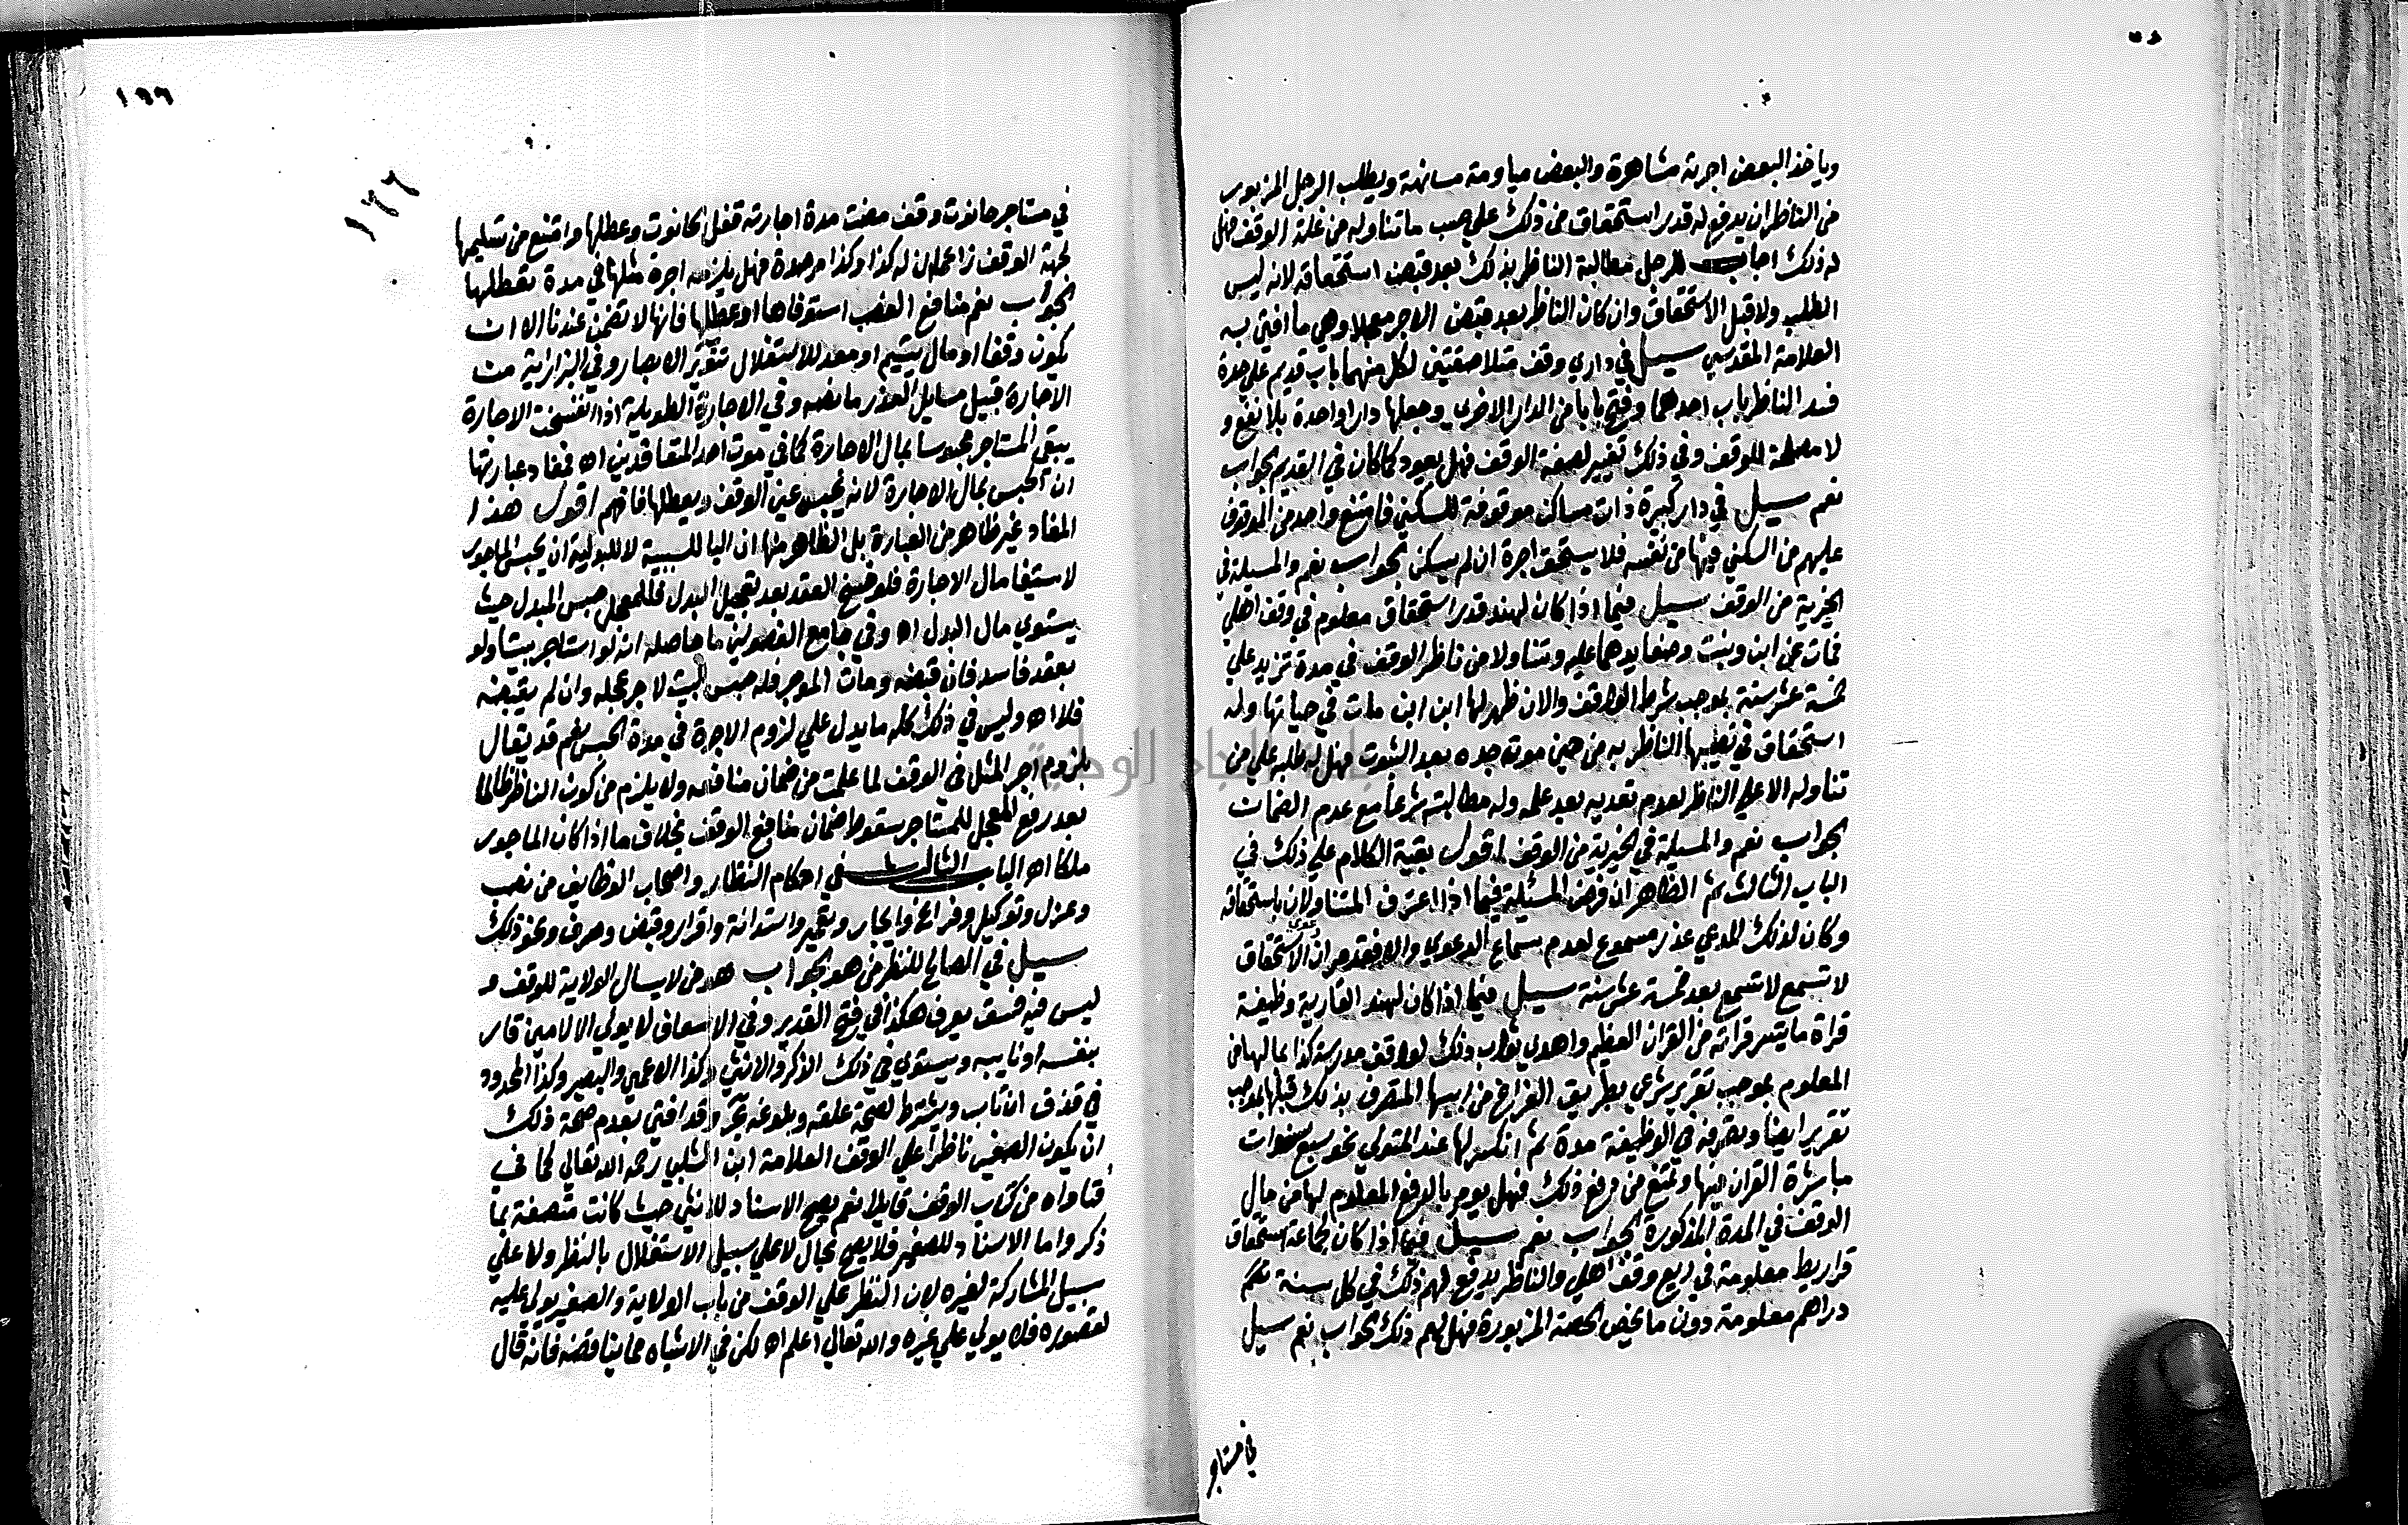 وياخذ البعض اجرته مشاهرة والبعض مياومة مسانهة ويطلب الرجل المزبور
من الناظر ان يدفع له قدر استحقاق من ذلك على حسب ما تناوله من غلة الوقف فهل
له ذلك اجاب للرجل مطالبة الناظر بذلك بعد قبض استحقاقه لانه ليس
الطلب ولا قبل الاستحقاق وان كان الناظر بعد قبض الاجر وهي ما افتى به
العلامة المقدسي سيل في داري وقف متلاصقتين لكل منهما باب قديم على حدة
فسد الناظر باب احدهما وفتح بابا من الدار الاخرى وجعلها دارا واحدة بلا نفع و
لا مصلحة للوقف وفي ذلك تغيير لصفة الوقف فهل يعود كما كان في القديم الجواب
نعم سيل في دار كبيرة ذات مساكن موقوفة للسكنى فامتنع واحد من الموقوف
عليهم من السكنى فيها من نفسه فلا يستحق اجرة ان لم يسكن الجواب نعم والمسيلة في
الخيرية من الوقف سيل فيما اذا كان لهند قدر استحقاق معلوم في وقف اهلي
فماتت عن ابن وبنت وضعا يدهما عليه وتناولا من ناظر الوقف في مدة تزيد على
خمسة عشر سنة بموجب شرط الواقف والان ظهر لها ابن ابن مات في حياتها وله
استحقاق في نصيبها الناظر به من حين موت جده بعد الثبوت فهل له طلبه على من
تناوله الا على الناظر لعدم تعديه بعد علمه وله مطالبته شرعا مع عدم الضمان
الجواب نعم والمسيلة في الخيرية من الوقف اقول بقية الكلام على ذلك في
الباب الثالث ثم الظاهر ان فرض المسئلة فيما اذا اعترف المتناولان باستحقاقه
وكان لذلك المدعي عذر مسموع لعدم سماع الدعوى والا فقد مر ان دعوى الاستحقاق
لا تسمع لا تسمع بعد خمسة عشر سنة سيل فيما اذا كان لهند القارية وظيفة
قراة ما يتيسر قراته من القران العظيم واهدي ثواب ذلك لواقف مدرسة كذا بما لها من
المعلوم بموجب تقرير شرعي بطريق الفراغ من ابيها المتصرف بذلك قبلها بموجب
تقرير ايضا وتصرفه في الوظيفة مدة ثم انكسر لها عند المتولي نحو سبع سنوات
مباشرة القران فيها وتمتنع من دفع ذلك فهل يومر بالدفع المعلوم لها من مال
الوقف في المدة المذكورة الجواب نعم سيل فيما اذا كان لجماعة استحقاق
قراريط معلومة في ريع وقف اهلي والناظر يدفع لهم ذلك في كل سنة
دراهم معلومة دون ما يخص الحصة المزبورة فهل لهم ذلك الجواب نعم سيل
في مستاجر
١٦٦
١٦٦
في مستاجر حانوت وقف مضت مدة اجارته قفل الحانوت وعطلها وامتنع من تسليمها
لجهة الوقف زاعما ان له كذا وكذا مرصدة فهل يلزمه اجرة مثلها في مدة تعطلها
الجواب نعم منافع الغصب استوفاها او عطلها فانها لا تضمن عندنا الا ان
يكون وقفا او مال يتيم او معد للاستغلال تنوير الابصار وفي البزازية من
الاجارة قبيل مسايل العذر ما نصه وفي الاجارة الطويلة اذا انفسخت الاجارة
يبقى المستاجر محبوسا بمال الاجارة كما في موت احد المتعاقدين اه فمفاد عبارتها
ان الحبس بمال الاجارة لانه يحبس عين الوقف ويعطلها فافهم اقول هذا
المفاد غير ظاهر من العبارة بل الظاهر منها ان البا للسببية لا للبدلية ان يحبس الماجور
لاستيفا مال الاجارة فلو فسخ العقد بعد تعجيل البدل فللمعجل حبس المبدل حيث
يستوي مال البدل اه وفي جامع الفصولين ما حاصله انه لو استاجر بيتا ولو
بعقد فاسد فان قبضه ومات الموجر فله حبس البيت لاجر عجله وان لم يقبضه
فلا اه وليس في ذلك كله ما يدل على لزوم الاجرة في مدة الحبس نعم قد يقال
بلزوم اجر المثل في الوقف لما علمت من ضمان منافعه ولا يلزم من كون الناظر ظالما
بعد رفع المعجل للمستاجر سقوط ضمان منافع الوقف بخلاف ما اذا كان الماجور
ملكا اه الباب الثالث في احكام النظار واصحاب الوظايف من نصب
وعزل وتوكيل وفراغ وايجار وتعمير واستدانة واقرار وقبض وصرف ونحو ذلك
سيل في الصالح للنظر من هو الجواب هو من لا يسال الولاية للوقف و
ليس فيه فسق يعرف هكذا في فتح القدير وفي الاسعاف لا يولى الا لامين قادر
بنفسه او نايبه ويستوي في ذلك الذكر والانثى وكذا الاعمى والبصير وكذا المحدود
في قذف ان تاب ويشترط لصحة عقله وبلوغه وقد افتى بعدم صحة ذلك
ان يكون الصغير ناظرا على الوقف العلامة ابن الشلبي رحمه الله تعالى كما في
فتاواه من كتاب الوقف قايلا نعم يصح الاسناد للانثى حيث كانت متصفة بما
ذكر واما الاسناد للصغير فلا يصح بحال لا على سبيل الاستقلال بالنظر ولا على
سبيل المشاركة لغيره لان النظر على الوقف من باب الولاية والصغير يولى عليه
لقصوره فلا يولى على غيره والله تعالى اعلم اه لكن في الاشباه مما يناقضه فانه قال